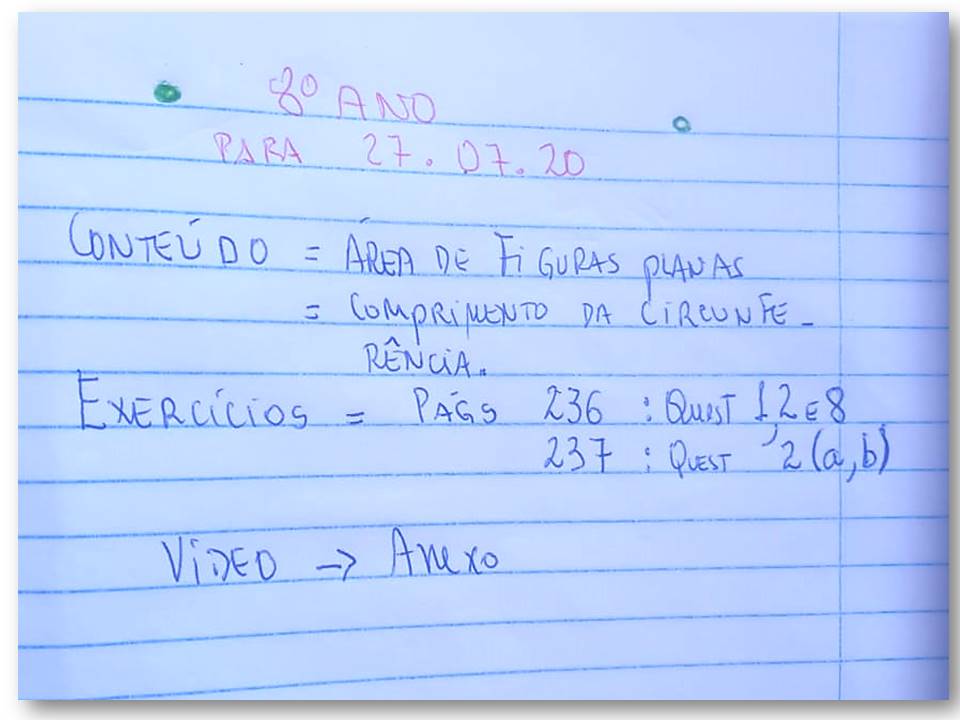 8º ANO
PARA 27.07.20
CONTEÚDO = ÁREA DE FIGURAS PLANAS
= COMPRIMENTO DA CIRCUNFE-
RÊNCIA.
EXERCÍCIOS = PÁGS 236 : QUEST 1,2 E 8
237 : QUEST 2 (a,b)
VÍDEO -> Anexo